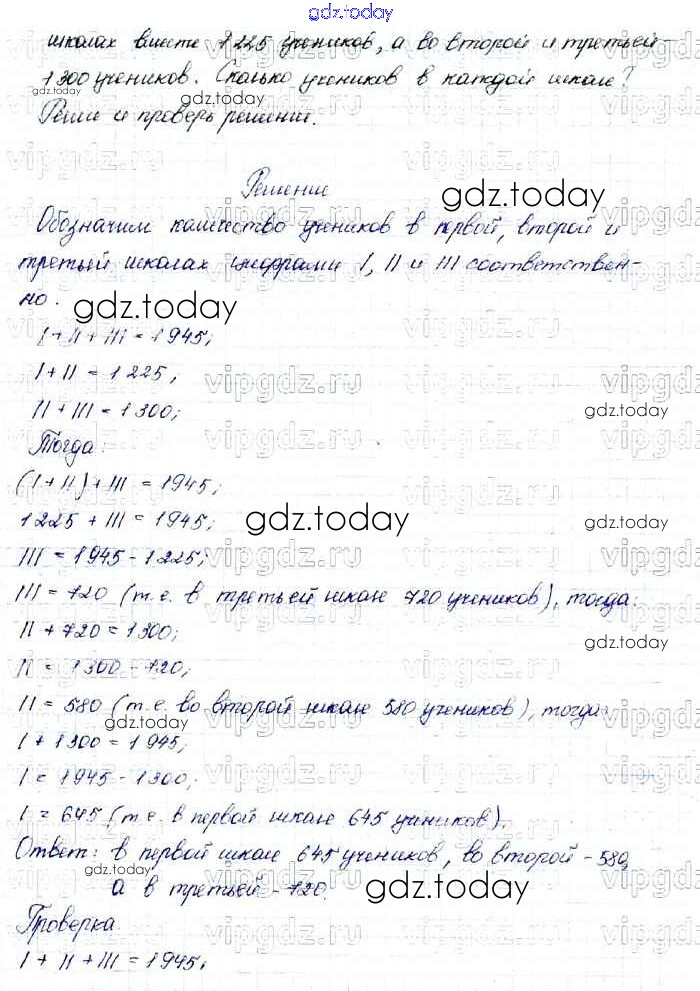 gdz.today
школах вместе 1225 учеников, а во второй и третьей -
1300 учеников. Сколько учеников в каждой школе?
gdz.today gdz.today gdz.today
Реши и проверь решение.
vipgdz.ru vipgdz.ru vipgdz.ru
Решение
gdz.today
Обозначим количество учеников в первой, второй и
третьей школах цифрами I, II и III соответствен-
но.
gdz.today gdz.today
I + II + III = 1945;
I + II = 1225;
vipgdz.ru vipgdz.ru vipgdz.ru
II + III = 1300;
gdz.today
Тогда:
(I + II) + III = 1945;
1225 + III = 1945;
gdz.today gdz.today
III = 1945 - 1225;
III = 720 (т.е. в третьей школе 720 учеников), тогда:
II + 720 = 1300;
gdz.today
II = 1300 - 720;
II = 580 (т.е. во второй школе 580 учеников), тогда:
gdz.today
I + 1300 = 1945;
I = 1945 - 1300;
I = 645 (т.е. в первой школе 645 учиников).
Ответ: в первой школе 645 учеников, во второй - 580,
а в третьей - 720.
gdz.today gdz.today
Проверка
I + II + III = 1945;